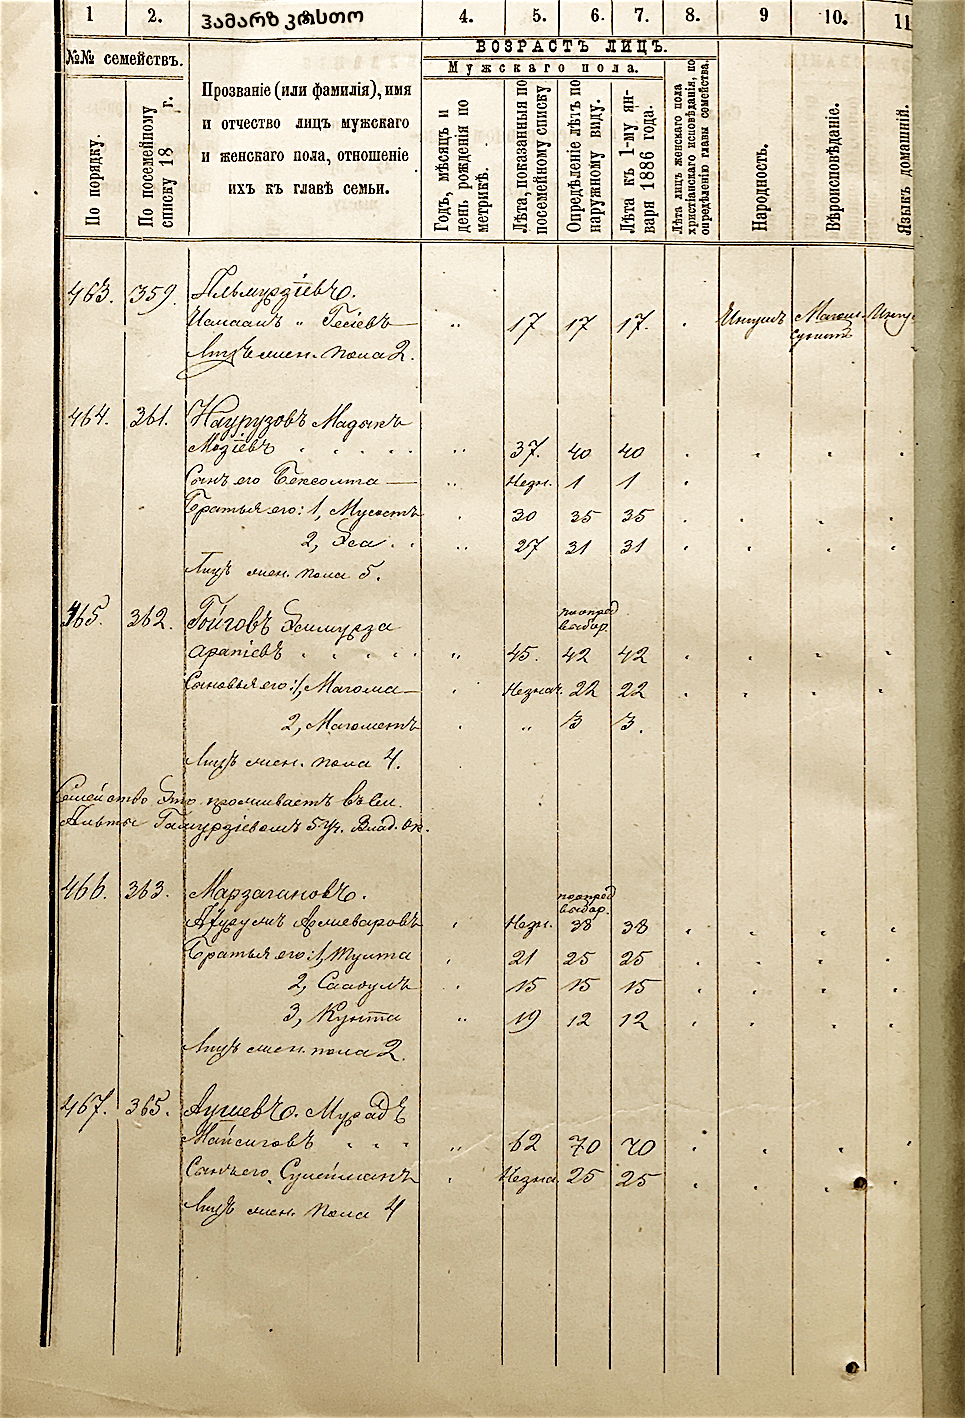 1 2. ჰამარზ კოსტო 4. 5. 6. 7. 8. 9 10. 11
№№ семействъ.
По порядку.
По посемейному списку 18 г.
Прозваніе (или фамилія), имя
и отчество лицъ мужскаго
и женскаго пола, отношеніе
ихъ къ главѣ семьи.
ВОЗРАСТЪ ЛИЦЪ.
Мужскаго пола.
Годъ, мѣсяцъ и
день рожденія по
метрикѣ.
Лѣта, показанныя по
посемейному списку
Опредѣленіе лѣтъ по
наружному виду.
Лѣта къ 1-му ян-
варя 1886 года.
Лѣта лицъ женскаго пола
христіанскаго исповѣданія, по
опредѣленію главы семейства.
Народность.
Вѣроисповѣданіе.
Языкъ домашній.
463. 359. Альмурзіевъ.
Исмаилъ „ Гесіевъ — „ 17 17 17. Ингушъ Магом. Ингу
Сунит
Лицъ жен. пола 2.
464. 361. Наурузовъ Мадыкъ
Мозіевъ „ 37. 40 40
Сынъ его Бексолта — „ Незн. 1 1
Братья его: 1, Мусостъ 30 35 35
2, Эса „ 27 31 31
Лицъ жен. пола 5.
465. 362. Гойговъ Эльмурза
поопред
выбор.
Арапіевъ „ 45. 42 42
Сыновья его: 1, Магома — Незнач. 22 22
2, Магометъ „ 3 3.
Лицъ жен. пола 4.
Семейство это проживаетъ въ сел.
Альты Гамурзіевомъ 5 уч. Влад. ок.
466. 363. Марзагановъ.
поопред
выбор.
Арсмеваровъ Незн. 38 38
Братья его: 1, Мулта 21 25 25
2, Саадулъ 15 15 15
3, Кунта „ 19 12 12
Лицъ жен. пола 2.
467. 365. Аушевъ. Мурадъ
Мансиговъ „ 62 70 70
Сынъ его Сулейманъ Незна. 25 25
Лицъ жен. пола 4